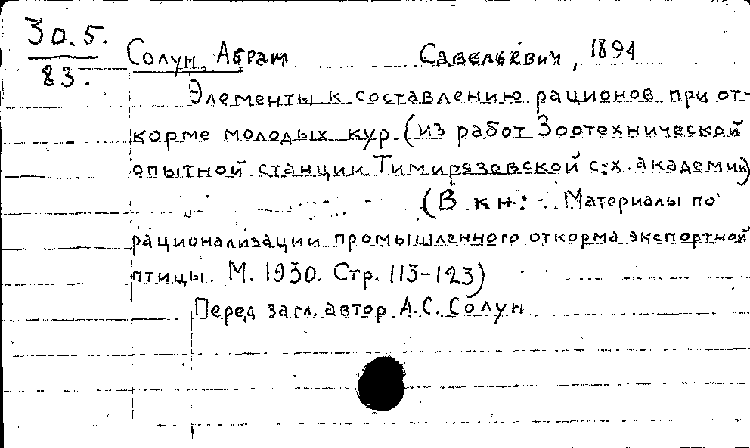 30.5.
83.
Солун, Абрам Савельевич, 1894
Элементы к составлению рационов при от-
корме молодых кур. (из работ Зоотехнической
опытной станции Тимирязевской с.-х. академии)
(В кн: Материалы по
рационализации промышленного откорма экспортной
птицы. М. 1930. Стр. 113-123)
Перед загл. автор А.С. Солун